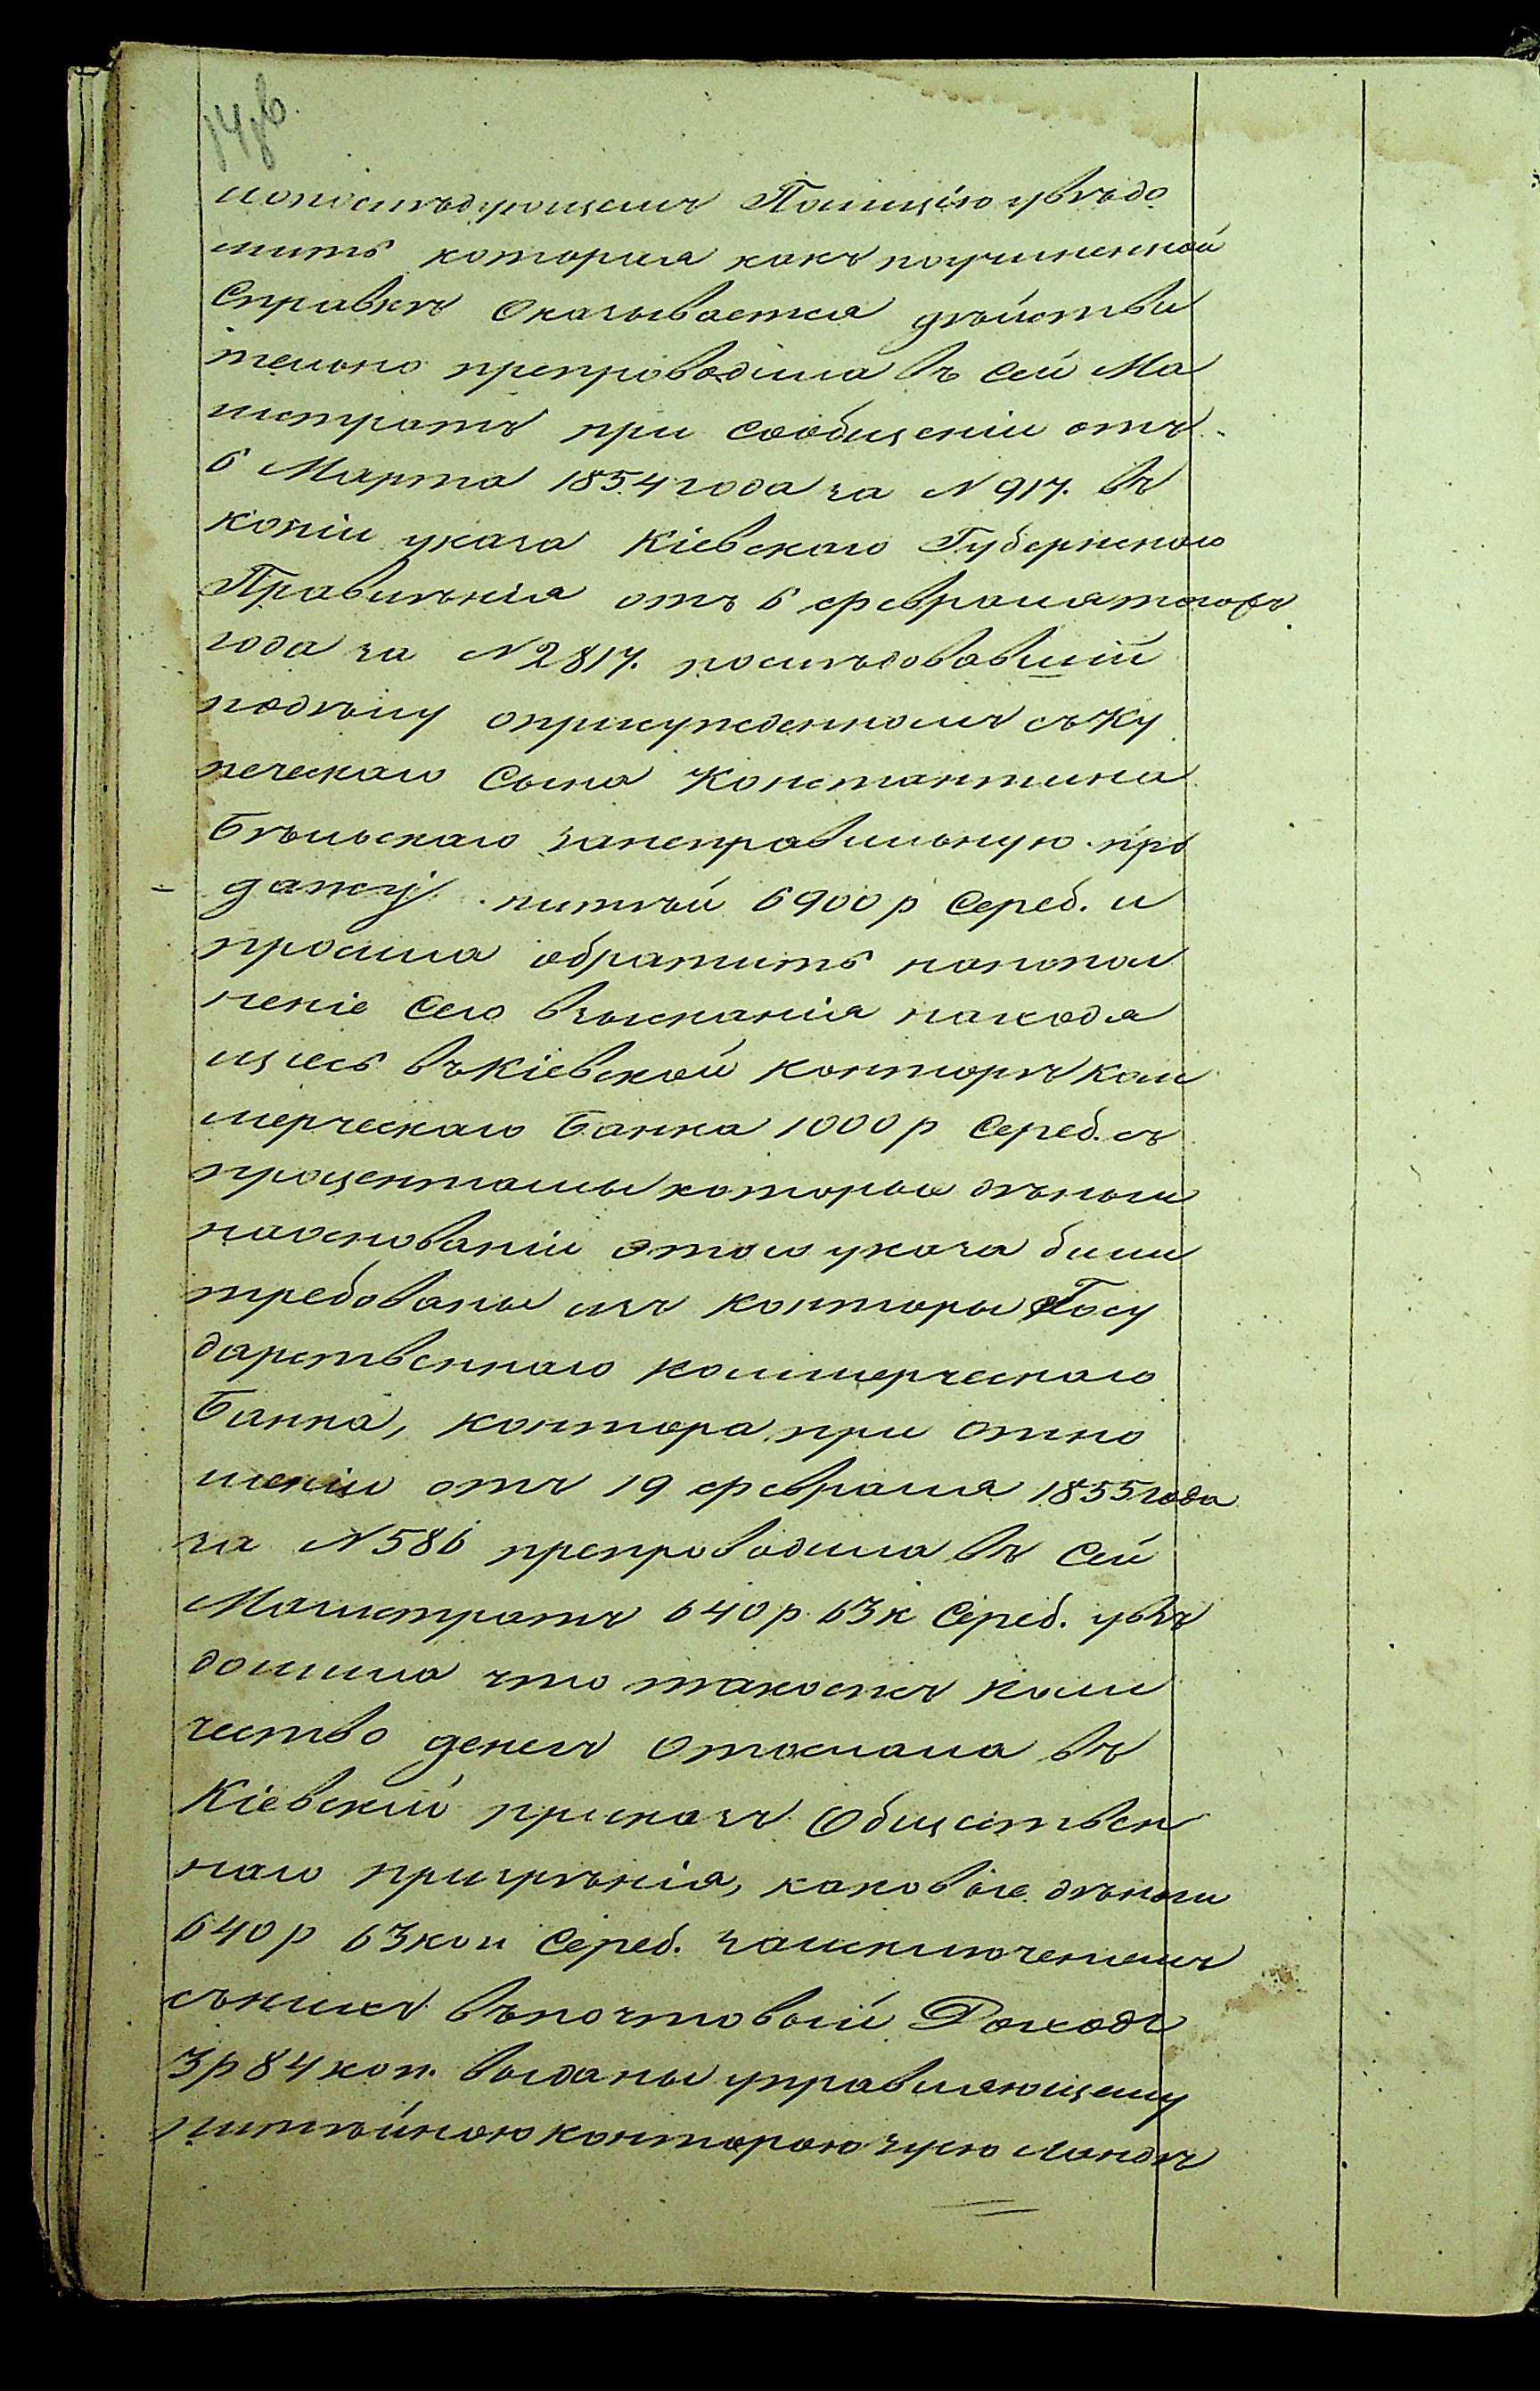 14об.
попослѣдующемъ Полицію увѣдо
мить которая какъ поучиненной
Справкѣ Оказывается дѣйстви
тельно препроводила въ сей Ма
истратъ при сообщеніи отъ
6 Марта 1854 года за N 917. въ
копіи указа Кіевскаго Губернскаго
Правленія отъ 6 февраля тогожъ
года за N 2817. послѣдовавшій
подѣлу оприсужденномъ съ Ку
печескаго Сына Константина
Бѣльскаго занеправильную про
дажу питѣй 6900 р Сереб. и
просила обратить напопол
неніе Сего взысканія находя
щіеся въ Кіевской Конторѣ Ком
мерческаго Банка 1000 р Сереб. съ
процентамы которые дѣньги
наоснованіи этого указа были
требованы изъ Конторы Госу
дарственнаго коммерческаго
Банка, контора при отно
шеніи отъ 19 февраля 1855 года
за N 586 препроводила въ Сей
Магистратъ 640 р 63 к Сереб. увѣ
домила что таковожъ коли
чество денегъ отослала въ
Кіевскій приказъ Обществен
наго призрѣнія, каковые дѣньги
640 р 63 коп Сереб. заисключеніемъ
съ нихъ въ почтовый Доходъ
3 р 84 коп. выданы управляющему
питѣйною конторою